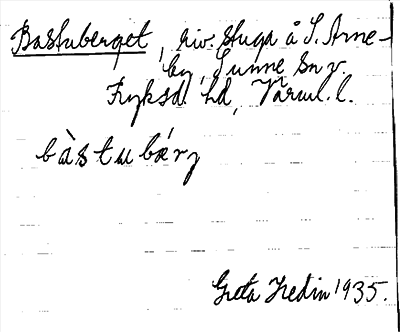 Bastuberget, riv. stuga å S. Arne-
by, Sunne sn v.
Fryksd. hd, Värml. l.
bàstubærj
Greta Hedin 1935.